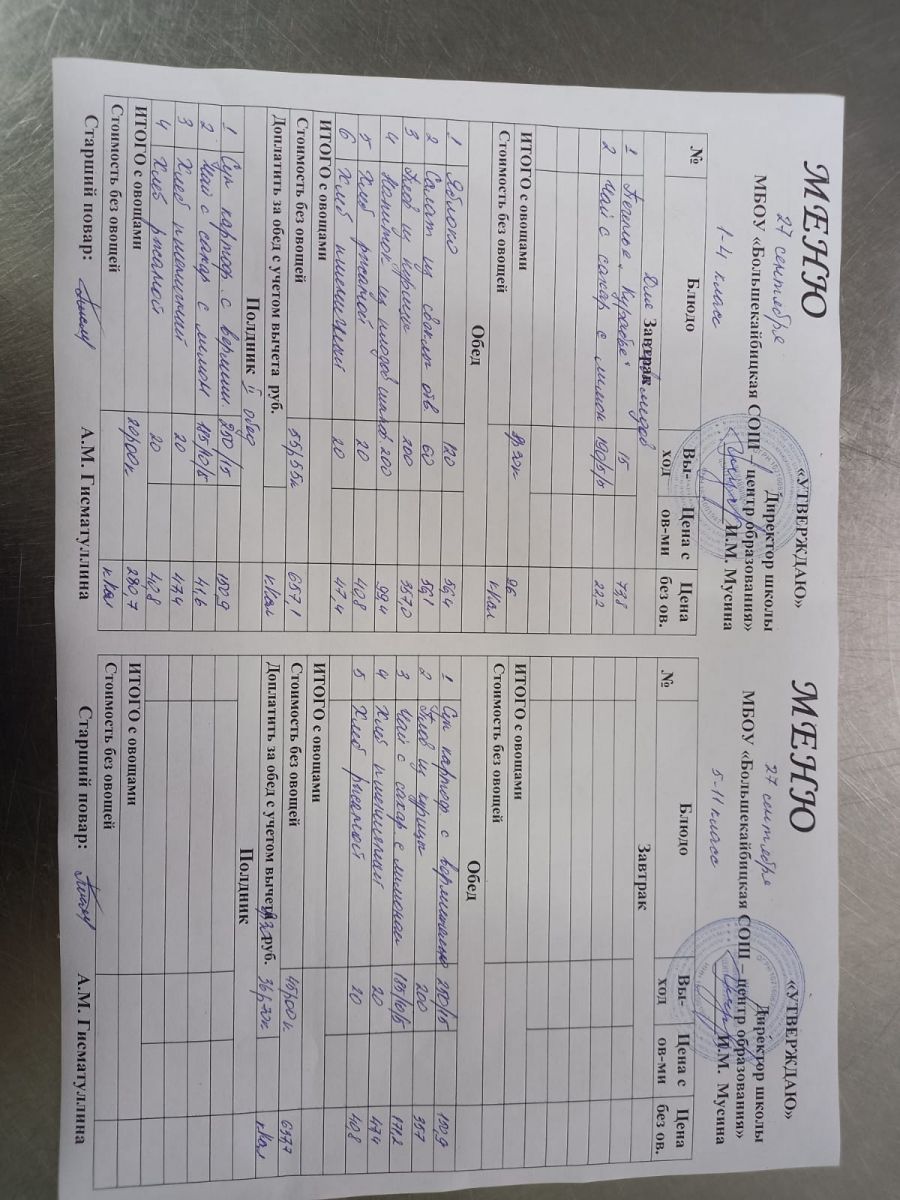 МЕНЮ
«УТВЕРЖДАЮ»
Директор школы
27 сентября
МБОУ «Большекайбицкая СОШ – центр образования»
1-4 класс
И.М. Мусина
№ Блюдо Вы-ход Цена с ов-ми Цена без ов.
Для Завтрак
1 Печенье "Курабье" 15 73,8
2 Чай с сахар с лимон 190/5/5 22,2
ИТОГО с овощами 96
Стоимость без овощей кКал
Обед
1 Яблоко 120 56,4
2 Салат из свеклы отв 60 56,1
3 Плов из курицы 200 357,0
4 Напиток из плодов шипов 200 99,4
5 Хлеб ржаной 20 40,8
6 Хлеб пшеничный 20 47,4
ИТОГО с овощами
Стоимость без овощей 55р55к 657,1
Доплатить за обед с учетом вычета руб. кКал
Полдник II обед
1 Суп картоф. с вермиш 250/15 150,9
2 Чай с сахар с лимон 185/10/5 41,6
3 Хлеб пшеничный 20 47,4
4 Хлеб ржаной 20 40,8
ИТОГО с овощами 20р00к 280,7
Стоимость без овощей кКал
Старший повар: А.М. Гисматуллина
МЕНЮ
«УТВЕРЖДАЮ»
Директор школы
27 сентября
МБОУ «Большекайбицкая СОШ – центр образования»
5-11 класс
И.М. Мусина
№ Блюдо Вы-ход Цена с ов-ми Цена без ов.
Завтрак
ИТОГО с овощами
Стоимость без овощей
Обед
1 Суп картоф с вермишелью 250/15 150,9
2 Плов из курицы 200 357
3 Чай с сахар с лимоном 185/10/5
4 Хлеб пшеничный 20 47,4
5 Хлеб ржаной 20 40,8
ИТОГО с овощами
Стоимость без овощей 45р00к 637,7
Доплатить за обед с учетом вычета руб. кКал
Полдник
ИТОГО с овощами
Стоимость без овощей
Старший повар: А.М. Гисматуллина